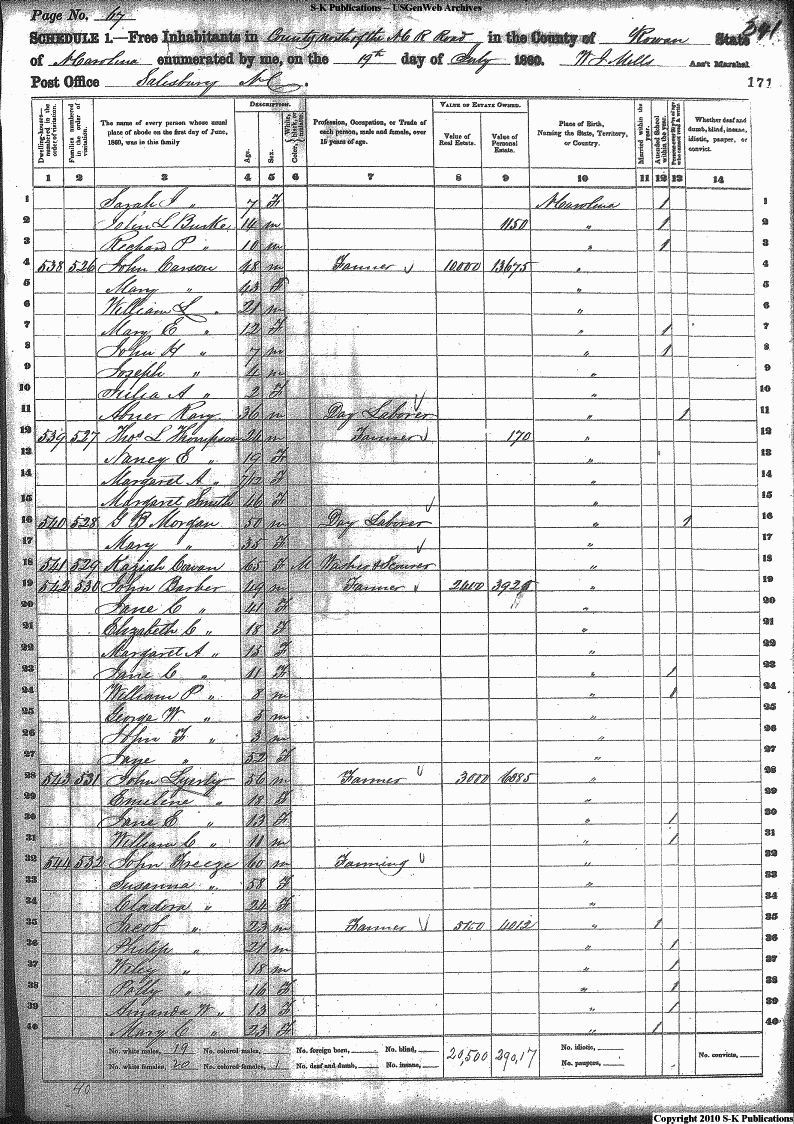 S-K Publications – USGenWeb Archives
Page No. 67
341
SCHEDULE 1.—Free Inhabitants in County north of the N C R Road in the County of Rowan State
of N Carolina enumerated by me, on the 19th day of July 1860. W J Mills Ass't Marshal.
Post Office Salisbury N C.
171
Dwelling-houses—numbered in the order of visitation. Families numbered in the order of visitation. The name of every person whose usual place of abode on the first day of June, 1860, was in this family. DESCRIPTION. Age. Sex. Color, Profession, Occupation, or Trade of each person, male and female, over 15 years of age. VALUE OF ESTATE OWNED. Value of Real Estate. Value of Personal Estate. Place of Birth, Naming the State, Territory, or Country. Married within the year. Attended School within the year. Whether deaf and dumb, blind, insane, idiotic, pauper, or convict.
1 2 3 4 5 6 7 8 9 10 11 12 13 14
1 Sarah J " 7 F N Carolina 1 1
2 John L Burke 14 m 1150 " 1 2
3 Richard P " 10 m " 1 3
4 538 526 John Carson 48 m Farmer 10000 13675 " 4
5 Mary " 43 F " 5
6 William L " 21 m " 6
7 Mary E " 12 F " 1 7
8 John H " 7 m " 1 8
9 Joseph " 4 m " 9
10 Julia A " 2 F " 10
11 Abner Rary 36 m Day Laborer " 1 11
12 539 527 Thos L Thompson 24 m Farmer 170 " 12
13 Nancy E " 19 F " 13
14 Margaret A " 7/12 F " 14
15 Margaret Smith 46 F " 15
16 540 528 G B Morgan 50 m Day Laborer " 1 16
17 Mary " 35 F " 17
18 541 529 Kaziah Cowan 65 F M Washer & Scourer " 18
19 542 530 John Barber 49 m Farmer 2400 3925 " 19
20 Jane C " 41 F " 20
21 Elizabeth C " 18 F " 21
22 Margaret A " 13 F " 22
23 Jane C " 11 F " 1 23
24 William P " 8 m " 1 24
25 George W " 5 m " 25
26 John F " 3 m " 26
27 Jane " 52 F " 27
28 543 531 John Lyerly 56 m Farmer 3000 6085 " 28
29 Emeline " 18 F " 29
30 Jane E " 13 F " 1 30
31 William C " 11 m " 1 31
32 544 532 John Freeze 60 m Farming " 32
33 Susanna " 58 F " 33
34 Cladora " 24 F " 34
35 Jacob " 23 m Farmer 5100 4012 " 1 35
36 Philip " 21 m " 1 36
37 Wiley " 18 m " 1 37
38 Polly " 16 F " 1 38
39 Amanda W " 13 F " 1 39
40 Mary C " 23 F " 1 40
No. white males, 19 No. colored males, No. foreign born, No. blind, 20,500 290,17 No. idiotic,
No. white females, 20 No. colored females, 1 No. deaf and dumb, No. insane, No. paupers, No. convicts,
40
Copyright 2010 S-K Publications